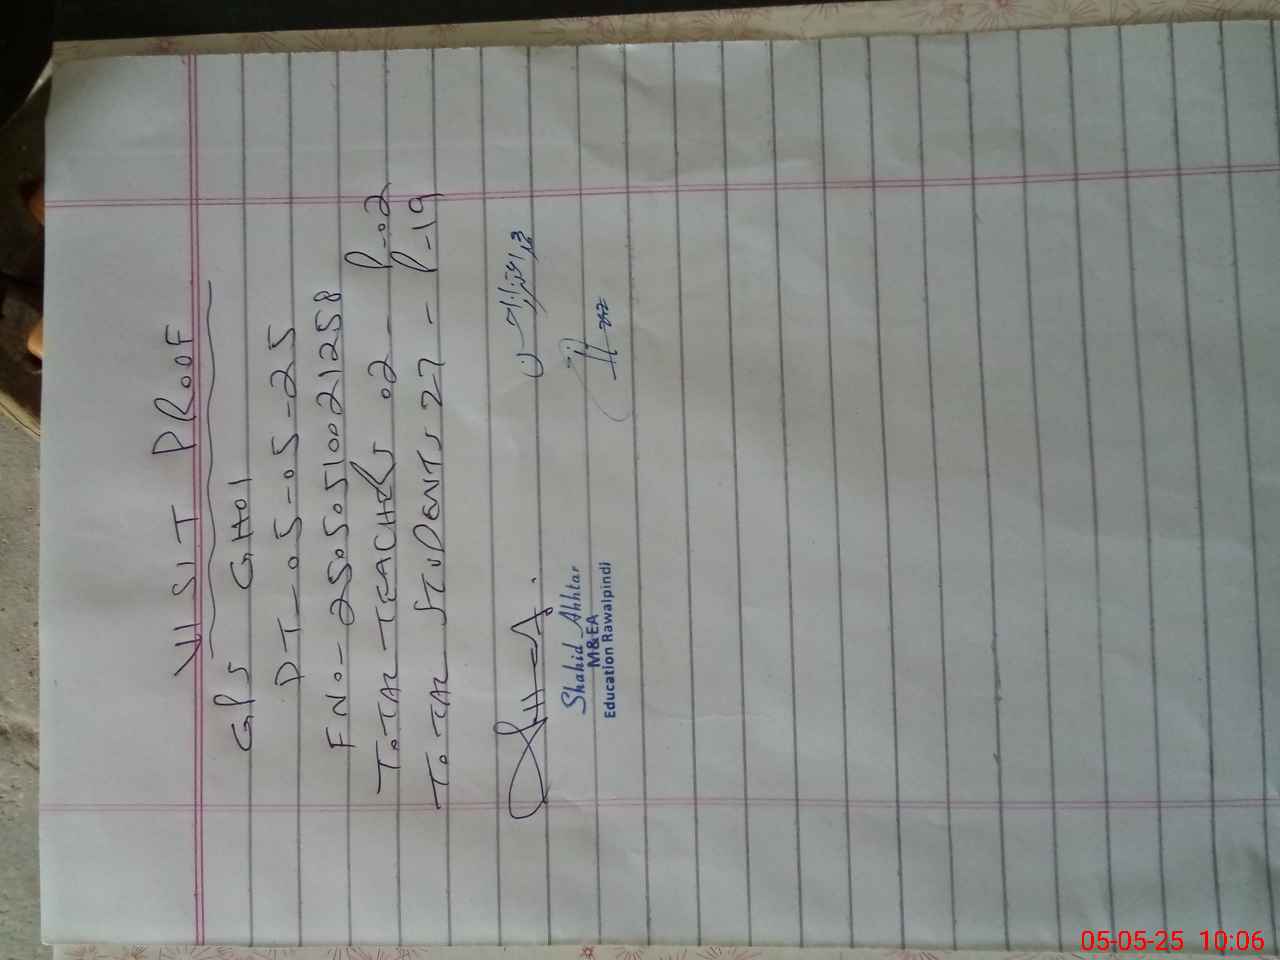 VISIT PROOF
GPS GHOI
DT-05-05-25
FNO-2505051002 1258
TOTAL TEACHERS 02 - P-02
TOTAL STUDENTS 27 - P-19
Shahid Akhtar
M&EA
Education Rawalpindi
05-05-25 10:06